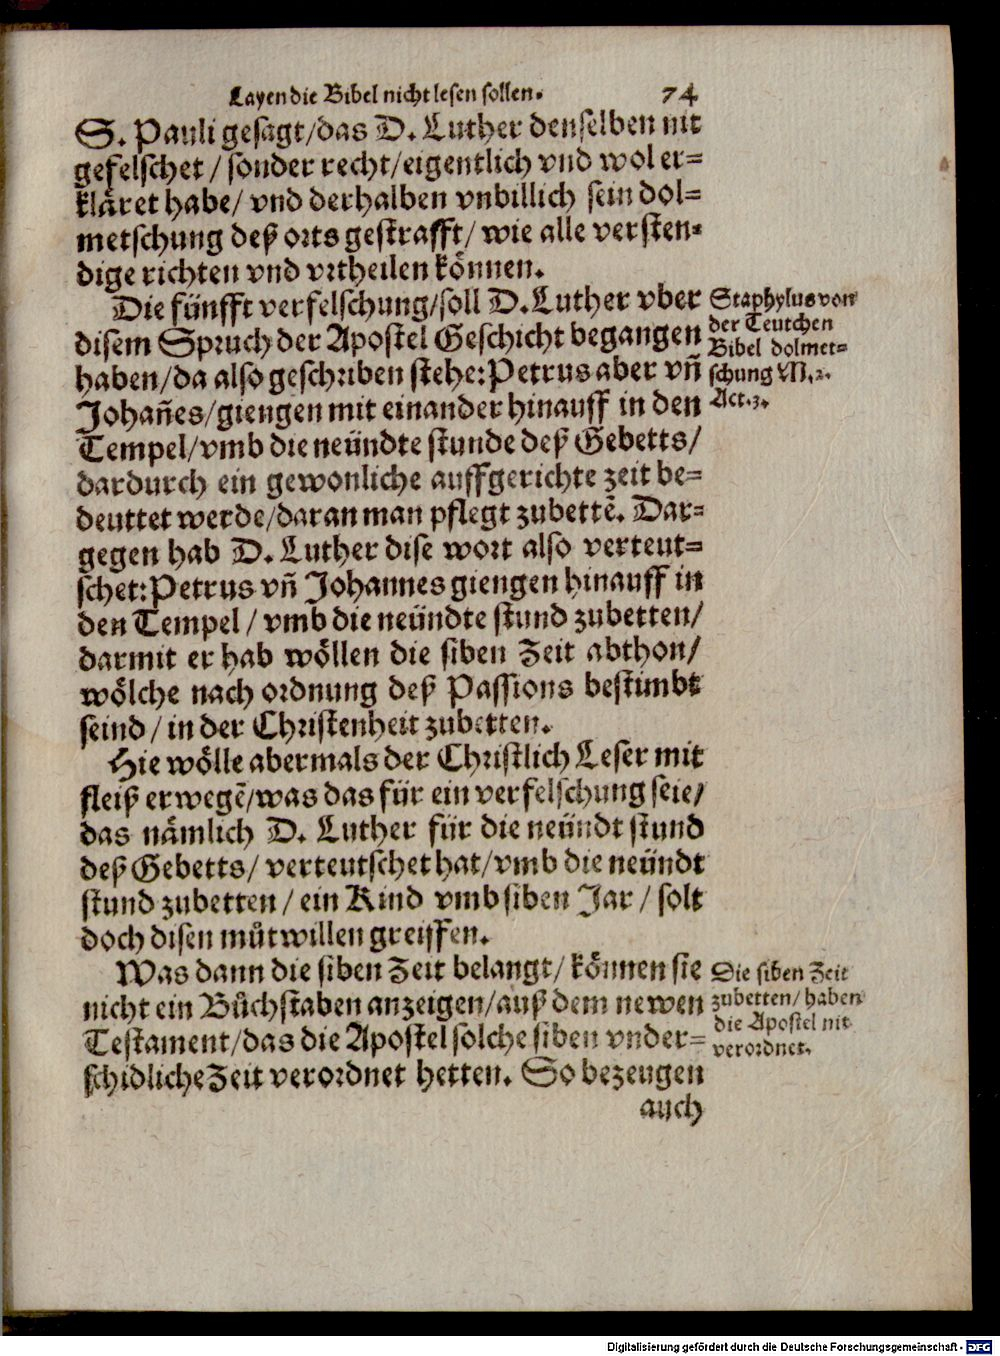 Layen die Bibel nicht lesen sollen. 74
S. Pauli gesagt/das D. Luther denselben nit
gefelschet / sonder recht/eigentlich vnd wol er=
kläret habe/ vnd derhalben vnbillich sein dol=
metschung deß orts gestrafft/ wie alle versten=
dige richten vnd vrtheilen können.
Die fünfft verfelschung/soll D. Luther vber
disem Spruch der Apostel Geschicht begangen
haben/da also geschriben stehe: Petrus aber vñ
Johañes/giengen mit einander hinauff in den
Tempel/vmb die neündte stunde deß Gebetts/
dardurch ein gewonliche auffgerichte zeit be=
deuttet werde/daran man pflegt zubettẽ. Dar=
gegen hab D. Luther dise wort also verteut=
schet: Petrus vñ Johannes giengen hinauff in
den Tempel / vmb die neündte stund zubetten/
darmit er hab wöllen die siben Zeit abthon/
wölche nach ordnung deß Passions bestimbt
seind / in der Christenheit zubetten.
Hie wölle abermals der Christlich Leser mit
fleiß erwegẽ/was das für ein verfelschung seie/
das nämlich D. Luther für die neündt stund
deß Gebetts/ verteutschet hat/vmb die neündt
stund zubetten / ein Kind vmb siben Jar / solt
doch disen můtwillen greiffen.
Was dann die siben Zeit belangt/ können sie
nicht ein Bůchstaben anzeigen/auß dem newen
Testament/das die Apostel solche siben vnder=
schidliche Zeit verordnet hetten. So bezeugen
auch
Staphylus von
der Teutchen
Bibel dolmet=
schung M.2.
Act.3.
Die siben Zeit
zubetten/ haben
die Apostel nit
verordnet.
Digitalisierung gefördert durch die Deutsche Forschungsgemeinschaft - DFG